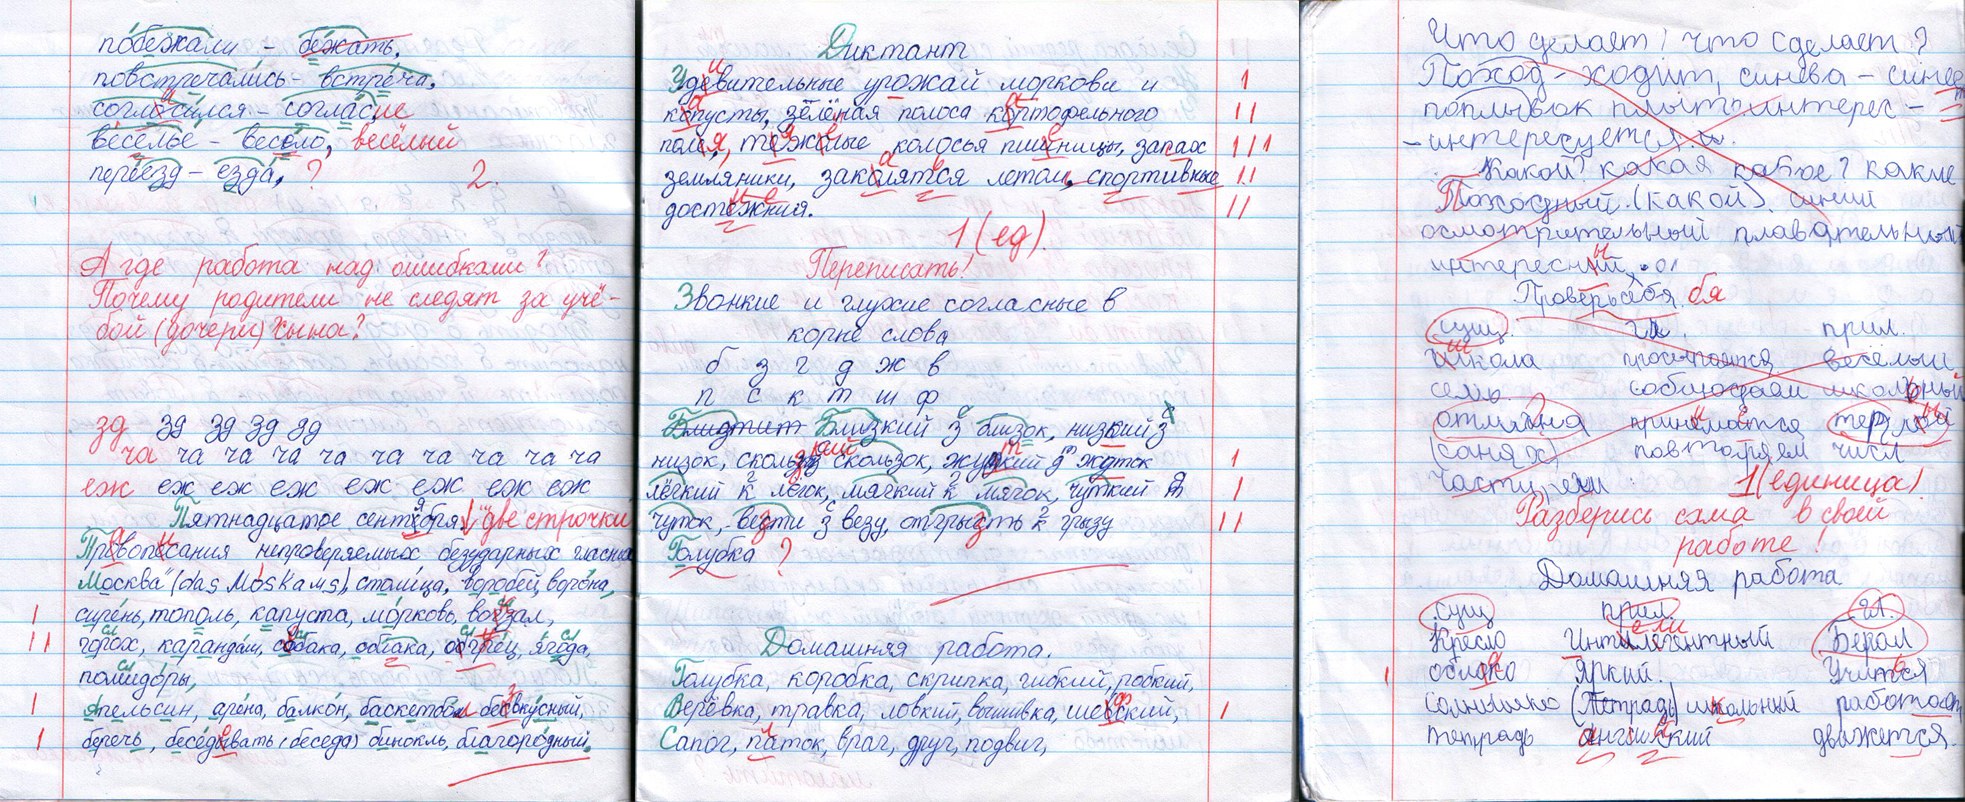 побежали - бежать,
повстречались - встреча,
согласился - согласие
веселье - весело, весёлый
переезд - езда, ? 2
А где работа над ошибками?
Почему родители не следят за учё-
бой (дочери) сына?
зд зд зд зд зд
ча ча ча ча ча ча ча ча ча ча
еж еж еж еж еж еж еж еж
Пятнадцатое сентября две строчки
Правописания непроверяемых безударных гласных
Москва столица, воробей, ворона,
сирень, тополь, капуста, морковь, вокзал,
горох, карандаш, собака, облака, огурец, ягода,
помидоры,
апельсин, арена, балкон, баскетбол безвкусный,
беречь, беседывать (беседа) бинокль, благородный.
Диктант
Удивительные урожай моркови и
капусты, зелёная полоса картофельного
поля, тяжёлые колосья пшеницы, запах
земляники, закаляться летом, спортивные
достижния.
1 (ед).
Переписать!
Звонкие и глухие согласные в
корне слова
б з г д ж в
п с к т ш ф
Близкий з близок, низкий з
низок, скользкий скользок, жудкий д ждток
лёгкий к легок, мягкий к мягок, чуткий т
чуток, везти з везу, отгрызть к грызу
Голубка ?
Домашняя работа.
Голубка, коробка, скрипка, гибкий, робкий,
Верёвка, травка, ловкий, вышивка, шефский,
Сапог, паток, врач, друг, подвиг,
Что делает? что сделает?
Поход - ходит, синева - синеет
поплывок плыть интерес -
- интересуется.
Какой? какая какое? какие
Походный (какой). синий
осмотрительный плавательный
интересный
Проверь себя. бя
сущ. гл. прил.
школа просыпается весёлый
семь. соблюдаем школьный
отмляна принимается
(саня х) повторяем числ
Части речи 1 (единица).
Разберись сама в своей
работе!
Домашняя работа
сущ прил. гл.
Кресло Интилегентный Берал
облако яркий. Учиться
солнышко (Тетрадь) школьный работает
тетрадь английский движется.